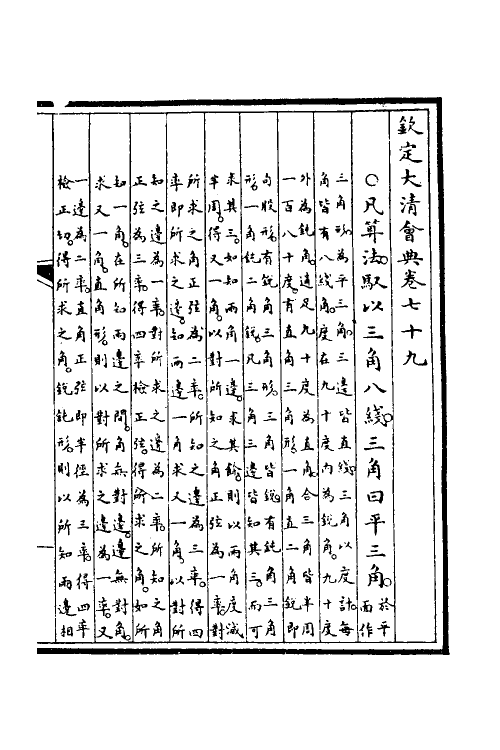 欽定大清會典卷七十九
○凡算法馭以三角八綫三角曰平三角於平
面作
三角形為平三角三邊皆直綫三角以度計每
角皆有八綫角度在九十度内為鋭角九十度
外為鈍角適足九十度為直角合三角皆半周
一百八十度有直角三角形一角直二角鋭即
句股形有鋭角三角形三角皆鋭有鈍角三角
形一角鈍二角鋭凡三角三邊皆知其三而可
求其三如知兩角一邊求其餘則以兩角度減
半周得又一角以對所知之角正弦為一率對
所求之角正弦為二率所知之邊為三率得四
率即所求之邊知兩邊一角求又一角以對所
知之邊為一率對所求之邊為二率所知之角
正弦為三率得四率檢正弦得所求之角如所
知一角在所知兩邊之間角無對邊邊無對角
求又一角直角形則以對所求之邊為一率又
一邊為二率直角正弦即半徑為三率得四率
檢正切得所求之角鋭鈍形則以所知兩邊相